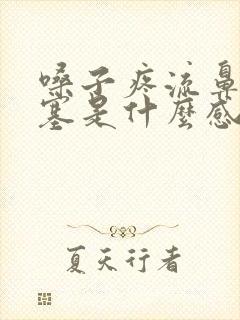 嗓子疼流鼻
塞是什麼感
夏天行者